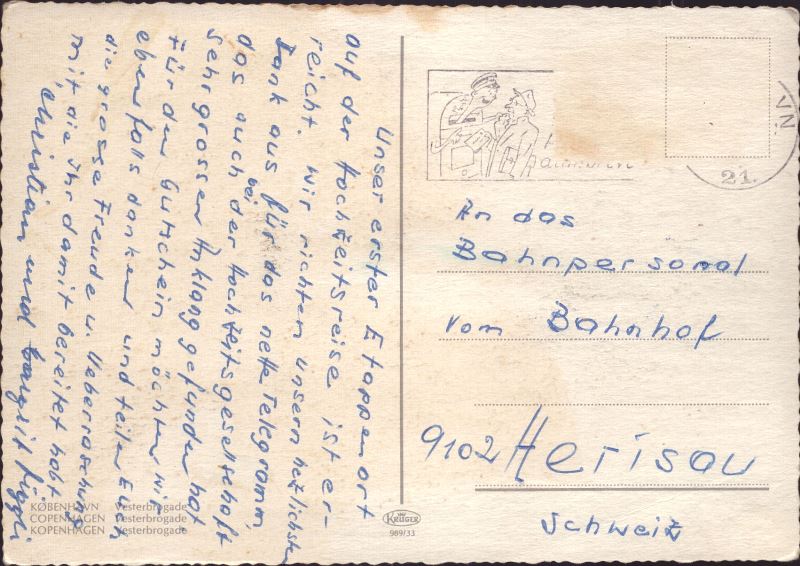 Unser erster Etappenort
auf der Hochzeitsreise ist er-
reicht. Wir richten unsern herlichsten
Dank aus für das nette Telegramm,
das auch bei der Hochzeitsgesellschaft
sehr grossen Anklang gefunden hat
Für den Gutschein möchten wir
ebenfalls danken und teilen Euch
die grosse Freude u. Ueberraschung
mit die ihr damit bereitet habt
Christian und Margrit
KØBENHAVN Vesterbrogade
COPENHAGEN Vesterbrogade
KOPENHAGEN Vesterbrogade
KRÜGER
989/33
VN
21.
An das
Bahnpersonal
vom Bahnhof
9102 Herisau
Schweiz